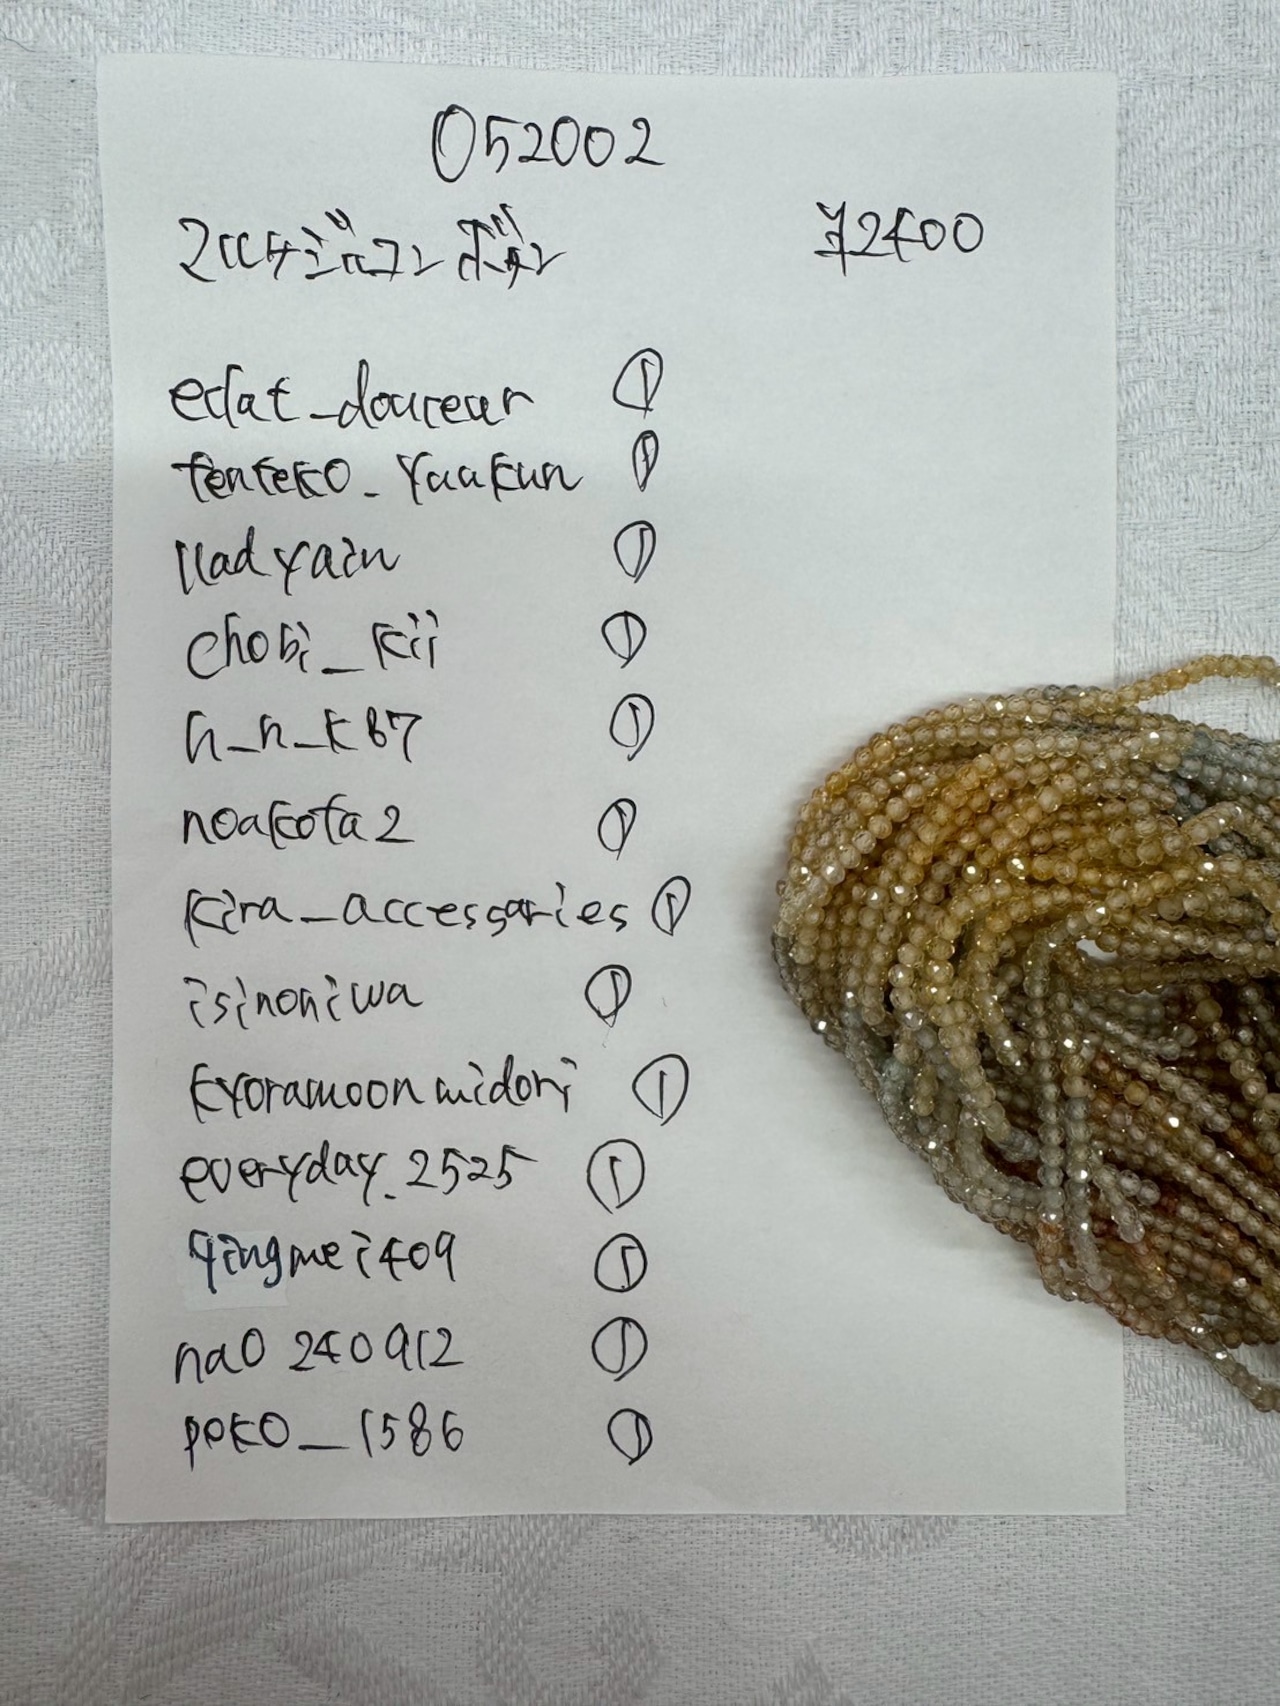 052002
¥2400
eclat_douceur ①
tenteko_yaakun ①
①
chobi_kii ①
h_n_k87 ①
noakota2 ①
kira_accessaries ①
isinoniwa ①
kyoramoonmidori ①
everyday.2525 ①
yingmei409 ①
nao240912 ①
poko_1586 ①